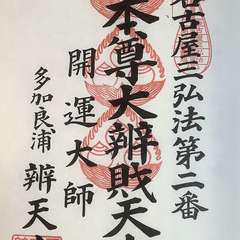 名古屋三弘法第二番
本尊大辨戝天
開運大師
多加良浦 辨天